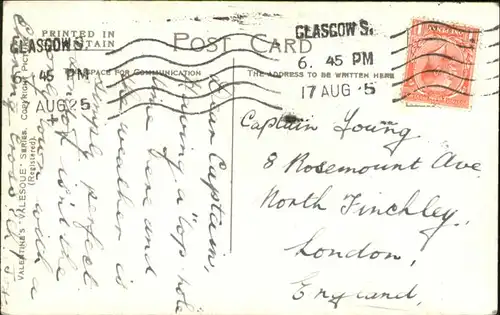 PRINTED IN
GT. BRITAIN
POST CARD
SPACE FOR COMMUNICATION
THE ADDRESS TO BE WRITTEN HERE
GLASGOW S.
6. 45 PM
17 AUG 5
GLASGOW S.
45 PM
AUG 25
Captain Young
8 Rosemount Ave
North Finchley,
London,
England.
Dear Captain,
Having a "top hole
time here and
the weather is
simply perfect
isn't the
with a
VALENTINE'S "VALESQUE" SERIES.
(Registered).
COPYRIGHT